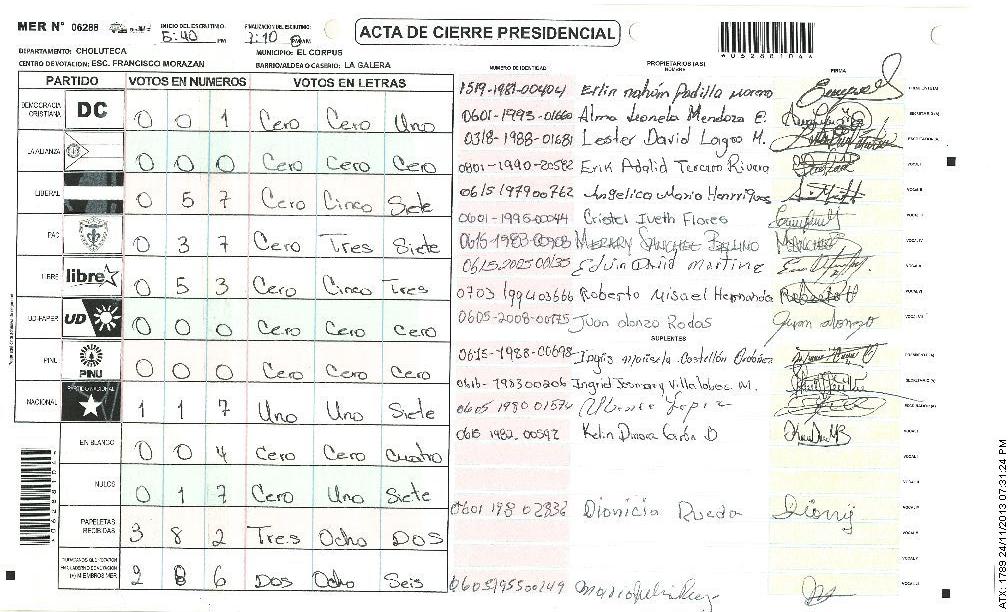 MER N° 06288
INICIO DEL ESCRUTINIO: 5:40 PM
FINALIZACION DEL ESCRUTINIO: 7:10 PM
ACTA DE CIERRE PRESIDENCIAL
DEPARTAMENTO: CHOLUTECA
MUNICIPIO: EL CORPUS
CENTRO DE VOTACION: ESC. FRANCISCO MORAZAN
BARRIO/ALDEA O CASERIO: LA GALERA
PARTIDO VOTOS EN NUMEROS VOTOS EN LETRAS
DEMOCRACIA CRISTIANA DC 0 0 1 Cero Cero Uno
LA ALIANZA 0 0 0 Cero Cero Cero
LIBERAL 0 5 7 Cero Cinco Siete
PAC 0 3 7 Cero Tres Siete
LIBRE libre 0 5 3 Cero Cinco Tres
UD-FAPER UD 0 0 0 Cero Cero Cero
PINU PINU 0 0 0 Cero Cero Cero
NACIONAL PARTIDO NACIONAL 1 1 7 Uno Uno Siete
EN BLANCO 0 0 4 Cero Cero Cuatro
NULOS 0 1 7 Cero Uno Siete
PAPELETAS RECIBIDAS 3 8 2 Tres Ocho Dos
(+) MIEMBROS MER 2 8 6 Dos Ocho Seis
NUMERO DE IDENTIDAD PROPIETARIOS (AS) NOMBRE FIRMA
1519-1981-00404 Erlin Nahún Padilla Moreno
0601-1993-01660 Alma Leonela Mendoza E.
0318-1988-01681 Lester David Lagos M.
0801-1990-20582 Erik Adalid Tercero Rivera
0615197900762 Angelica Maria Henriquez
0601-1995-00044 Cristel Iveth Flores
0615-1983-00908 Merary Sanchez
Edwin David Martinez
0703 199403666 Roberto Misael Hernandez
0605-2008-00175 Juan alonzo Rodas Juan alonzo
SUPLENTES
0615-1988-00698 Ingris Mariela Castellón Ordoñez
Ingrid Josmary Villalobos M.
0605 1980 01574
0615 1982 00592 Kelin
0601 198 02836 Dionicia Rueda Diony
0605195500149
ATX: 1789 24/11/2013 07:31:24 PM